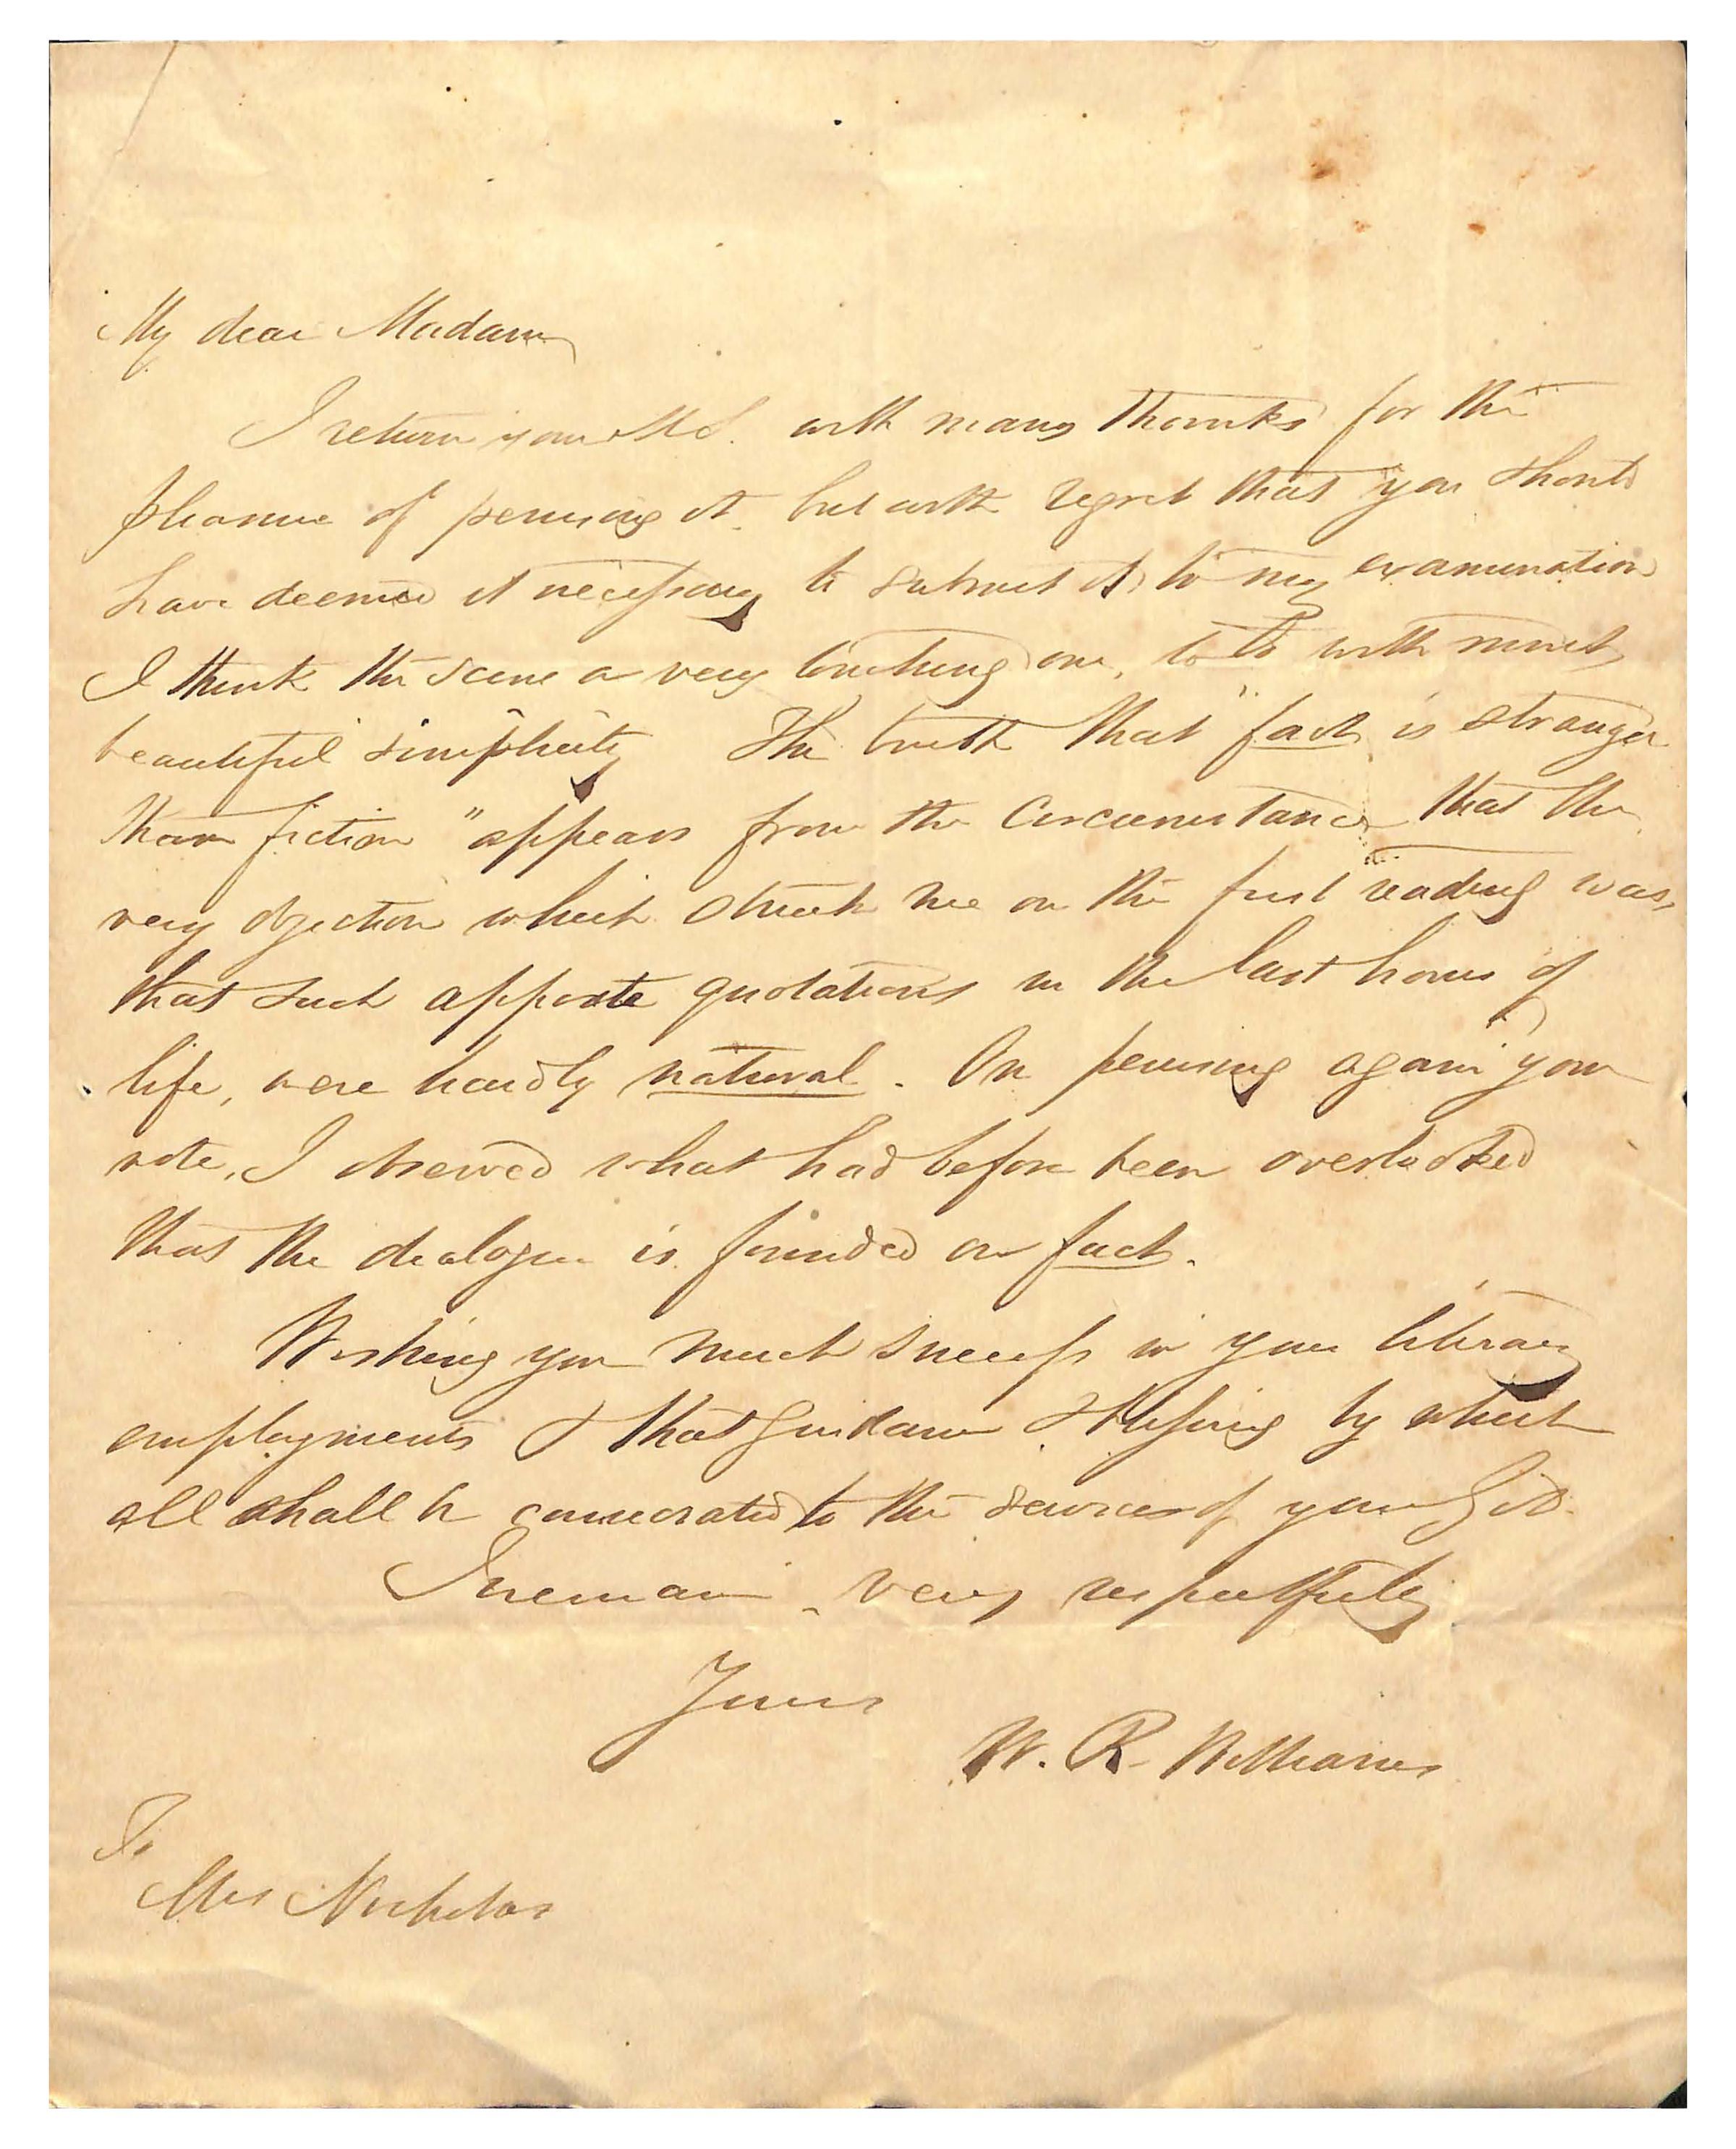 My dear Madam
I return your MS. with many thanks for the
pleasure of perusing it. but with regret that you should
have deemed it necessary to submit it to my examination
I think the scene a very touching one, with much
beautiful simplicity The truth that "fact is stranger
than fiction" appears from the circumstance that the
very objection which struck me on the first reading was,
that such apposite quotations in the last hours of
life, were hardly natural. On perusing again your
note, I observed what had before been overlooked
that the dialogue is founded on fact.
Wishing you much success in your literary
employments & that guidance & blessing by which
all shall be consecrated to the service of your God.
I remain, very respectfully
Yours
W. R. Williams
To
Mrs Nicholas